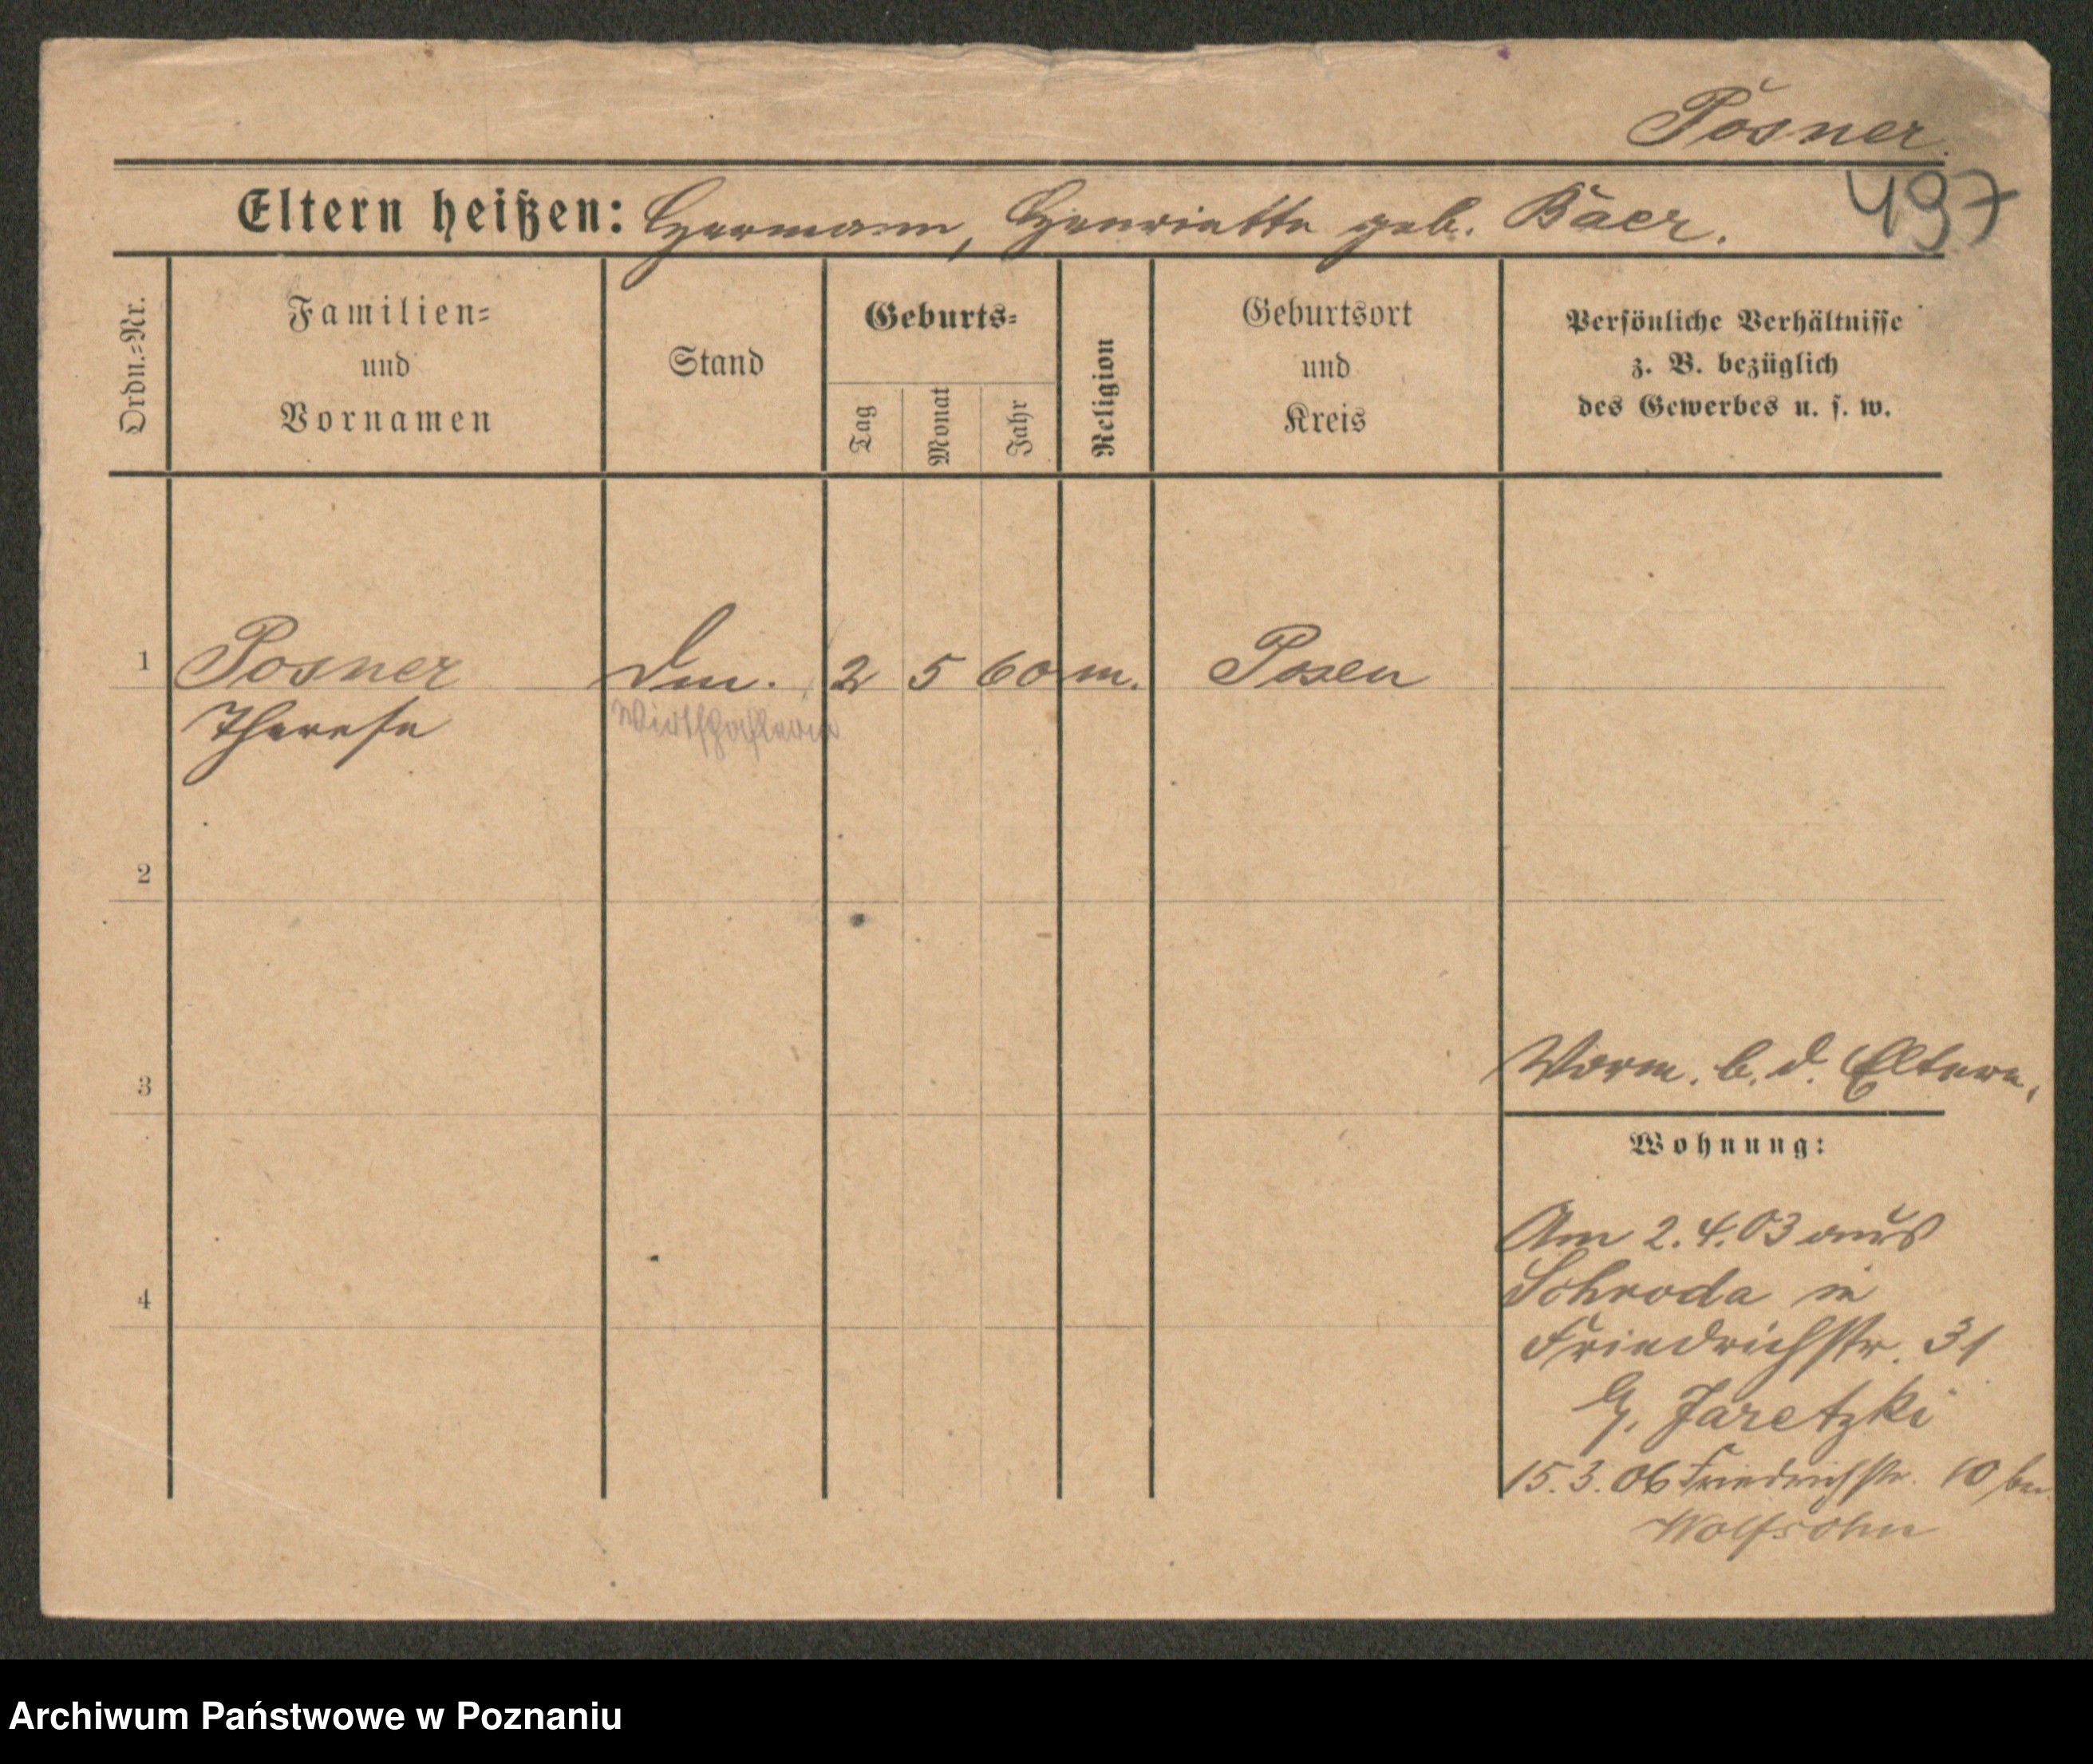 Posner.
497
Eltern heißen: Hermann, Henriette geb. Baer.
Ordn.=Nr.
Familien=
und
Vornamen
Stand
Geburts=
Tag
Monat
Jahr
Religion
Geburtsort
und
Kreis
Persönliche Verhältnisse
z. B. bezüglich
des Gewerbes u. s. w.
1 Posner 2 5 60 m. Posen
Therese Wirthschafterin
2
3
Vorm. b. d. Eltern.
Wohnung:
4
Am 2.4.03 aus
Schroda in
Friedrichstr. 31
Jaretzki
15.3.06 Friedrichstr. 10 bei
Wolfsohn
Archiwum Państwowe w Poznaniu